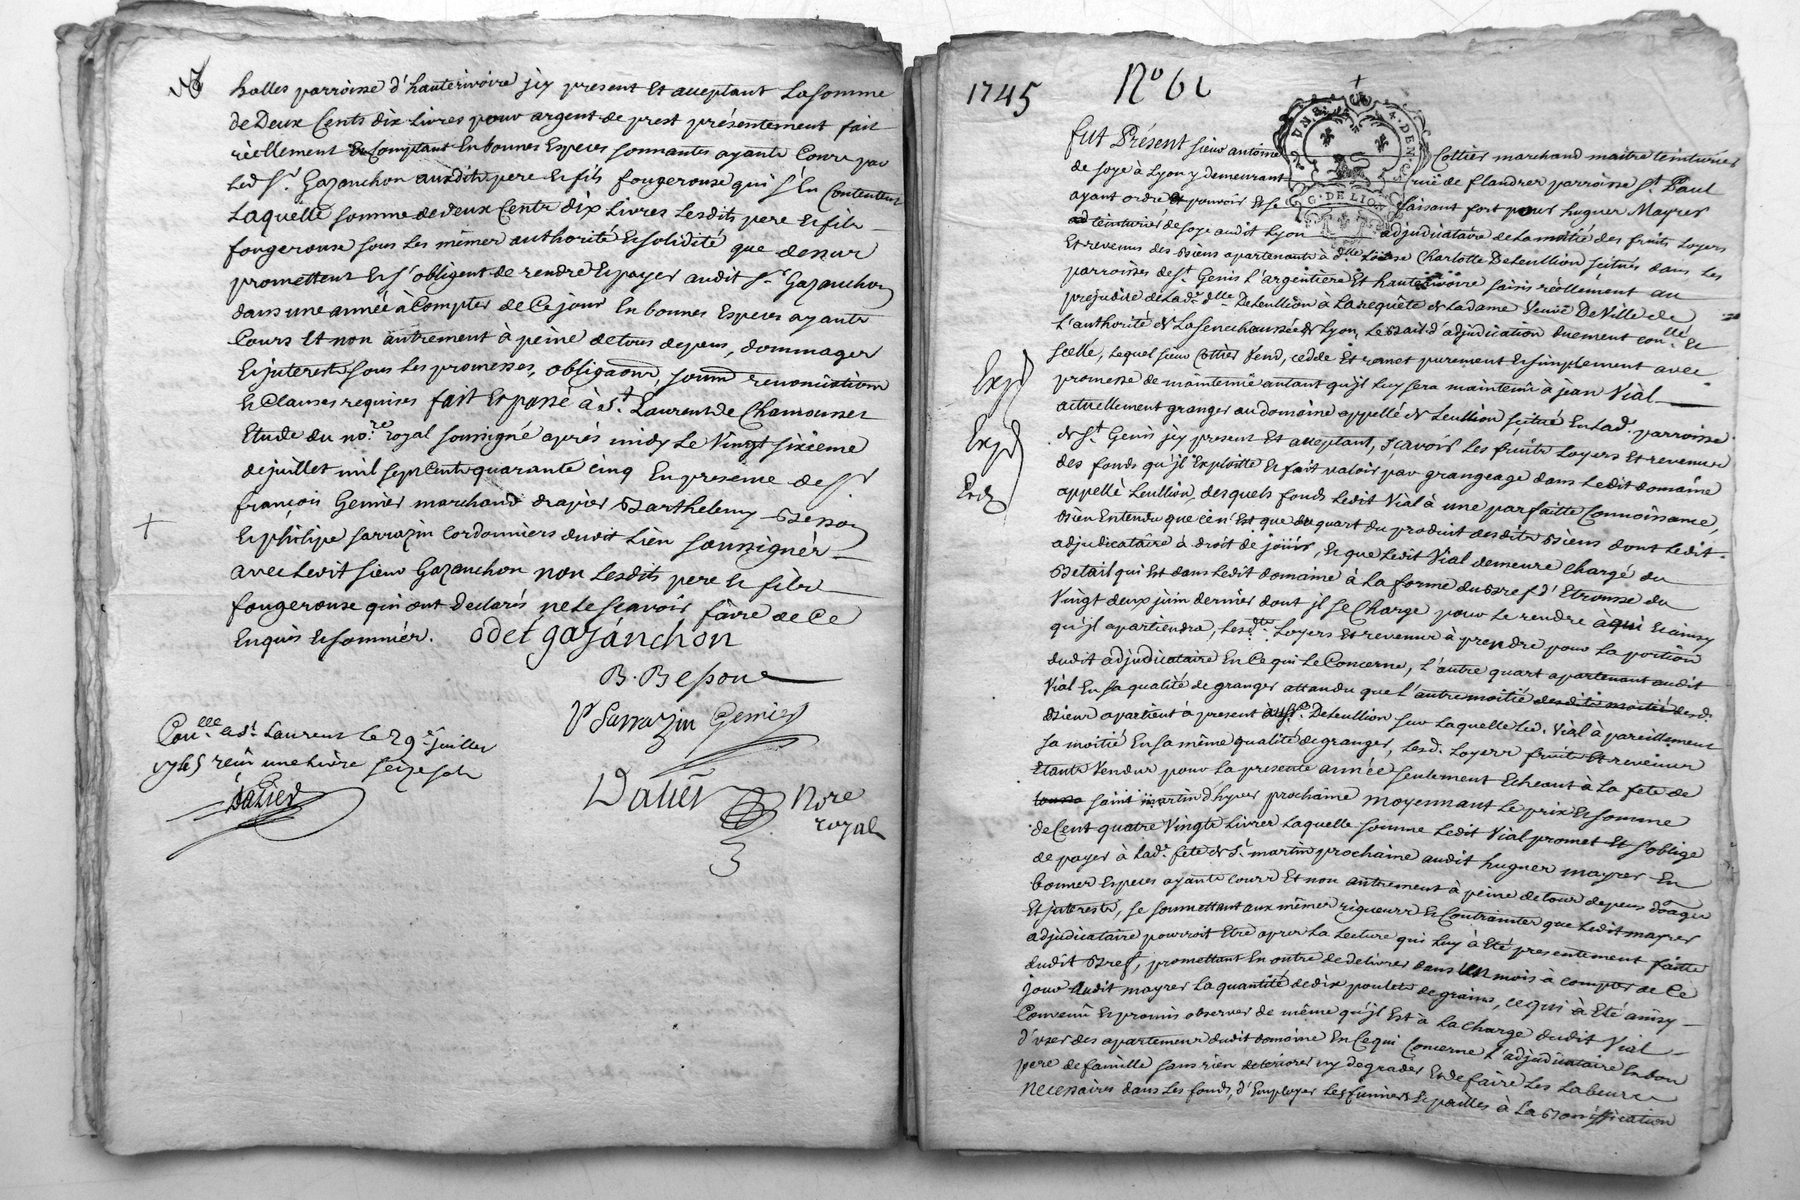 halles parroisse d'hauterivoire jcy present Et acceptant La somme
de Deux Cents dix Livres pour argent de prest présentement fait
réellement Comptant En bonnes Especes sonnantes ayants Cours par
Led Sr. Gazanchon auxdits pere Et fils fougerouse qui s'En Contentent
Laquelle somme de deux Cents dix Livres Lesdits pere Et fils
fougerouse sous Les mêmes authorité Et solidité que dessus
promettent Et s'obligent de rendre Et payer audit Sr. Gazanchon
dans une année a Compter de Ce jour En bonnes Especes ayants
Cours Et non autrement à peine de tous depens, dommages
Et jnterests sous Les promesses, obligaons, soumons renonciations
Et Clauses requises fait Et passé à St. Laurent de Chamousset
Etude du nore. royal soussigné après midy Le Vingt sixieme
de juillet mil sept Cents quarante cinq En presence de Sr
françois Genier marchand drapier Barthelemy Besson
Et philipe sarrazin Cordonniers dudit Lieu soussignés
avec Ledit sieur Gazanchon non Lesdits pere Et fils
fougerouse qui ont declarés ne Le sçavoir faire de Ce
Enquis Et sommés. odet gazanchon
B. Besson
P Sarrazin Genier
Conllé. à St Laurent Le 29e juillet
1745 reçu une Livre seize sols
Dalier
Dalier Nore
royal
1745 No 61
G. DE LION
fut Présent sieur antoine Cottier marchand maitre teinturier
de soye à Lyon y demeurant rue de flandres parroisse St. Paul
ayant ordre Et pouvoir Et se faisant fort pour hugues Mayres
teinturier de soye audit Lyon adjudicataire de La moitié des fruits Loyers
Et revenus des Biens apartenants à dlle Louise Charlotte DeLeullion scitués dans Les
parroisses de St. Genis L'argentiere Et hauterivoire saisis réellement au
prejudice de Lad. dlle DeLeullion à La requête de La dame Veuve DeVille de
L'authorité de La Senechaussée de Lyon, Le Bail d'adjudication duement conllé. Et
scellé, Lequel sieur Cottier Vend, cedde Et remet purement Et simplement avec
promesse de maintenüe autant qu'jl Luy sera maintenu à jean Vial
actuellement granger au domaine appellé de Leullion scitué En Lad. parroisse
de St. Genis jcy present Et acceptant, sçavoir Les fruits Loyers Et revenus
des fonds qu'jl Exploitte Et fait valoir par grangeage dans Ledit domaine
appellé Leullion, desquels fonds Ledit Vial à une parfaitte Connoissance,
Bien Entendu que ce n'Est que du quart du produit desdits Biens dont Ledit
adjudicataire à droit de joüir, Et que Ledit Vial demeure chargé du
Betail qui Est dans Ledit domaine à La forme du Bref d'Etrousse du
Vingt deux juin dernier dont jl se Charge pour Le rendre à qui Et ainsy
qu'jl apartiendra, Lesdts. Loyers Et revenus à prendre pour La portion
dudit adjudicataire En Ce qui Le Concerne, L'autre quart apartenant audit
Vial En sa qualité de granger attendu que L'autre moitié desdits moitié desd.
Biens apartient à present DeLeullion sur Laquelle Led. Vial à pareillement
sa moitié En sa même qualité de granger, Lesd. Loyers fruits Et revenus
Etants Vendus pour La presente année seulement Echeant à La fete de
saint martin d'hyver prochaine moyennant Le prix Et somme
de Cent quatre Vingts Livres Laquelle somme Ledit Vial promet Et s'oblige
de payer à Lade. fete de St. martin prochaine audit hugues mayres En
bonnes Especes ayants cours Et non autrement à peine de tous depens doages
Et jnterests, se soumettant aux mêmes rigueurs Et Contraintes que Ledit mayres
adjudicataire pourroit Etre apres La Lecture qui Luy à Eté presentement faitte
dudit Bref, promettant En outre de delivrer dans un mois à compter de Ce
jour audit mayres La quantité de dix poulets de grains, ce qui à Eté ainsy
Convenu Et promis observer de même qu'jl Est à La charge dudit Vial
d'user des apartemens dudit domaine En Ce qui Concerne L'adjudicataire En bon
pere de famille sans rien deteriorer ny degrader Et de faire Les Labeurs
Necessaires dans Les fonds, d'Employer Les fumiers Et pailles à La Bonnification
Expd
Expd
Exd